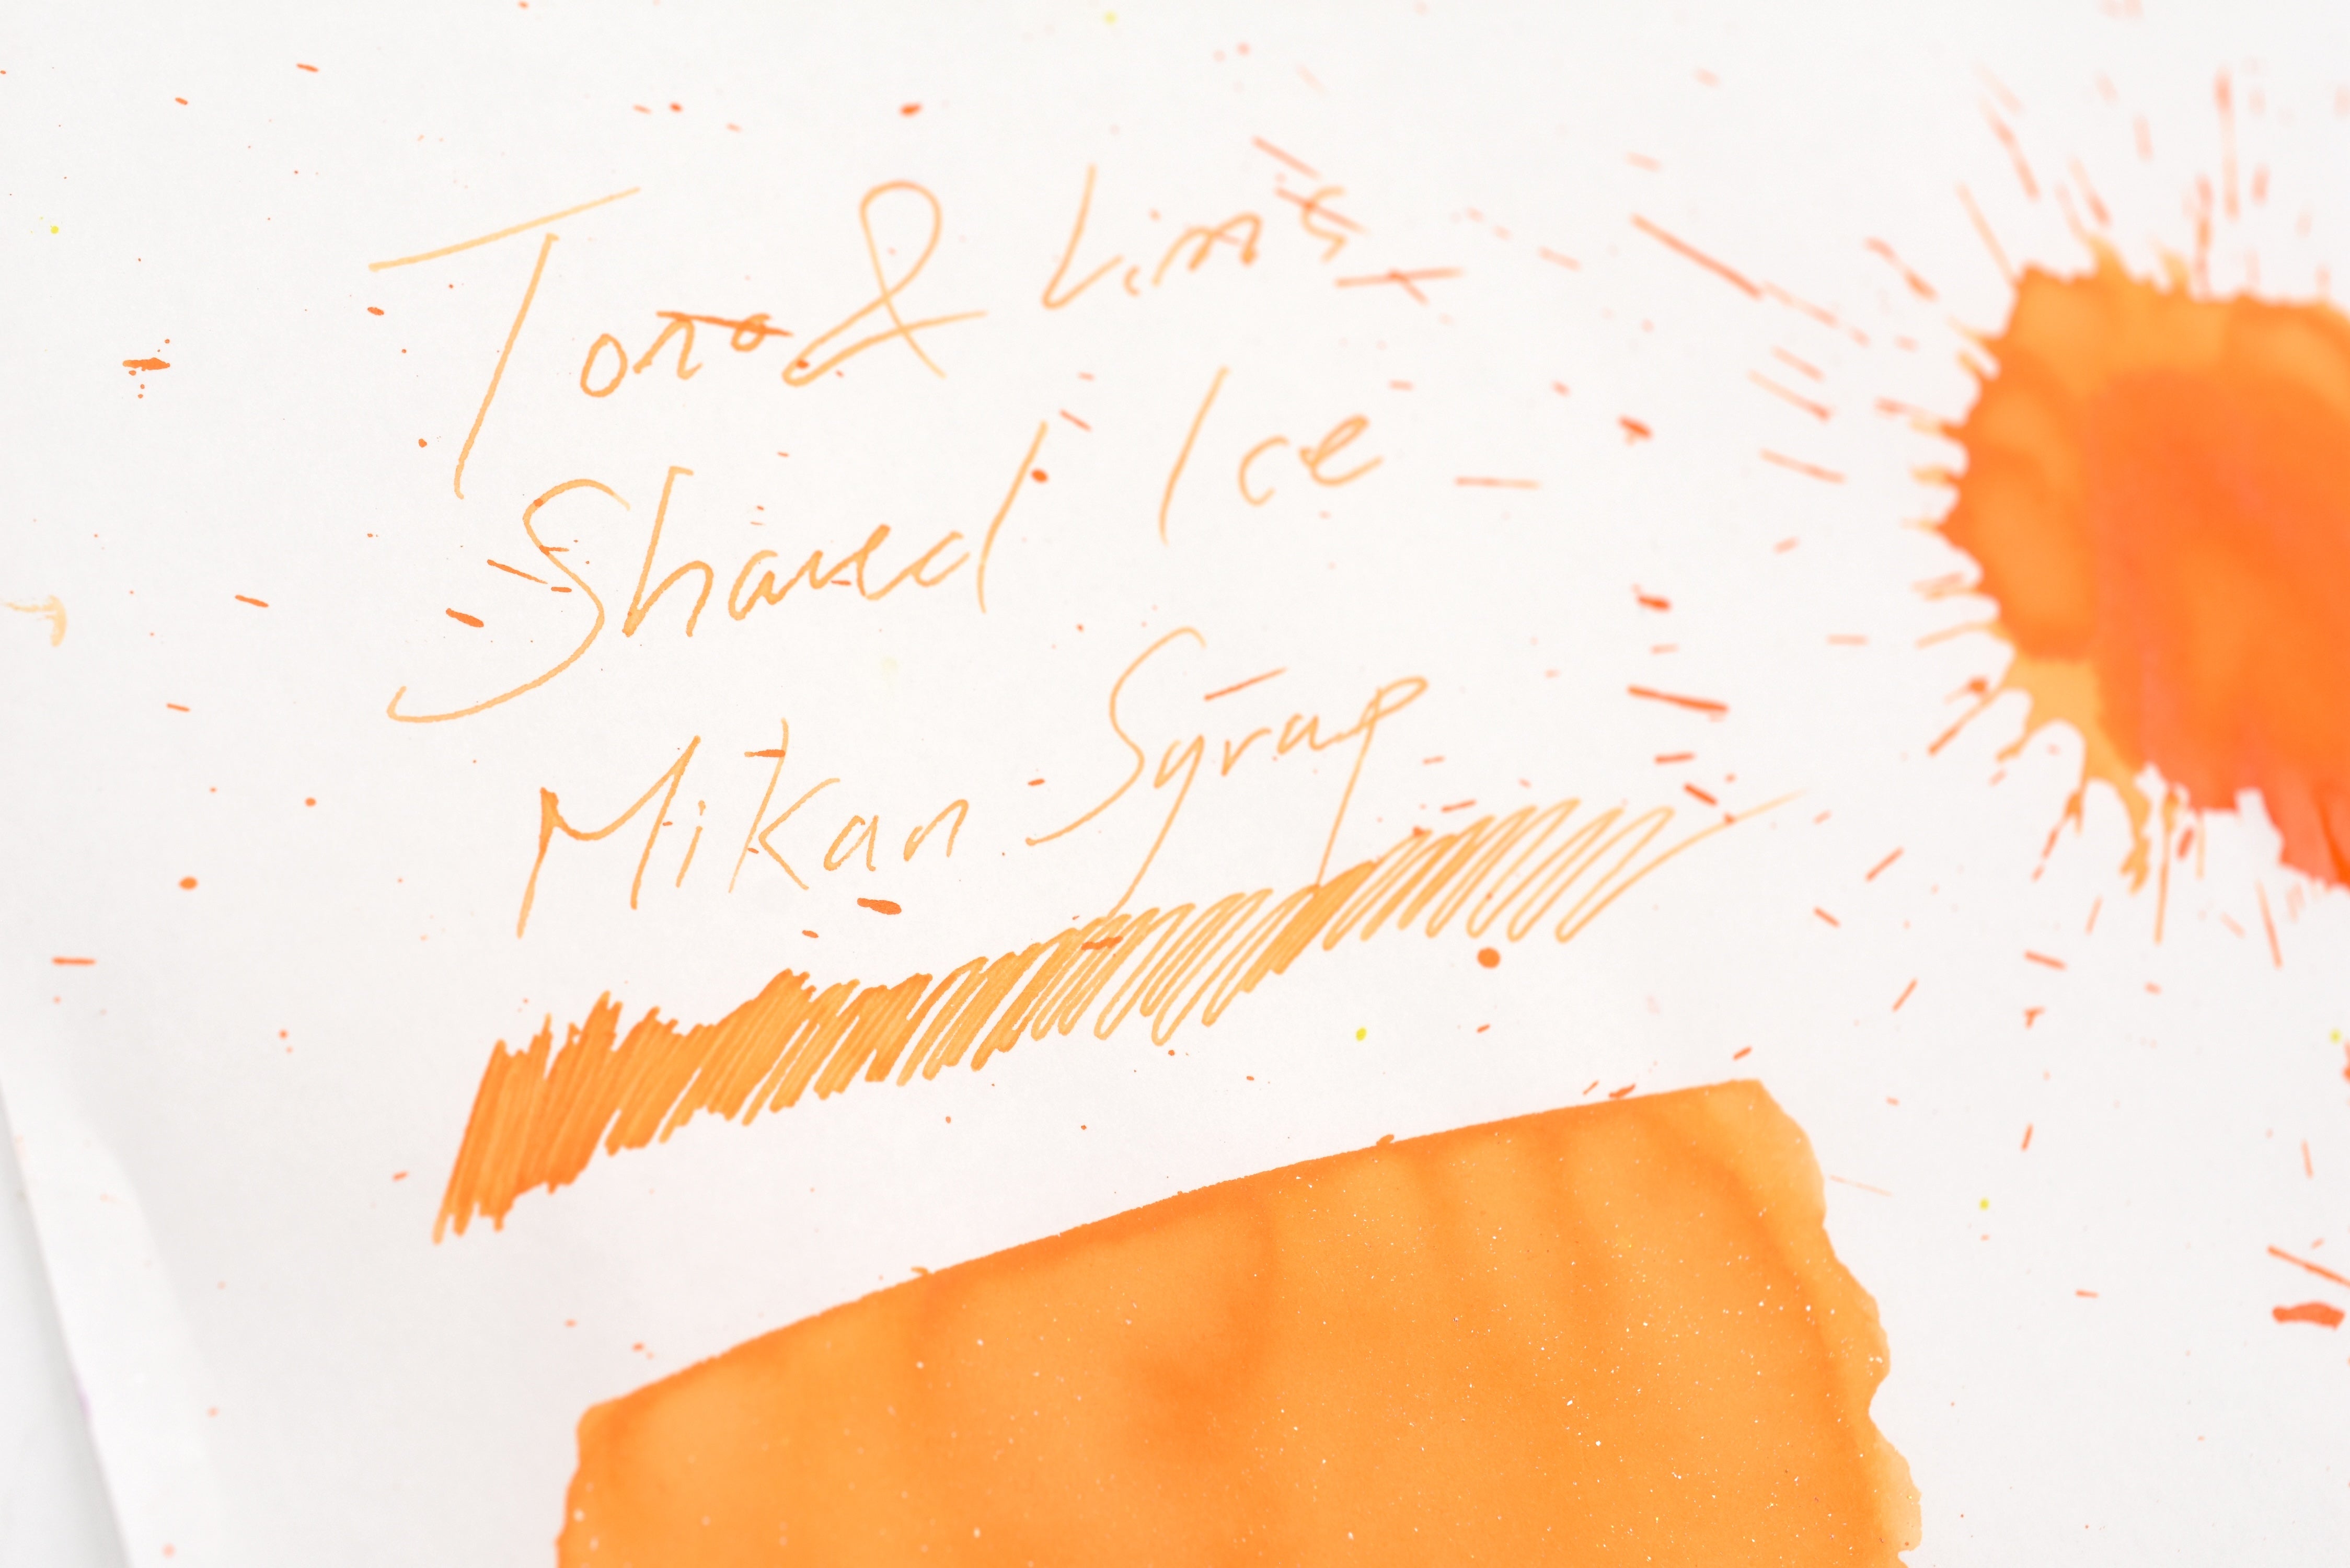 Tono & Lims
Shaved Ice
Mikan Syrup